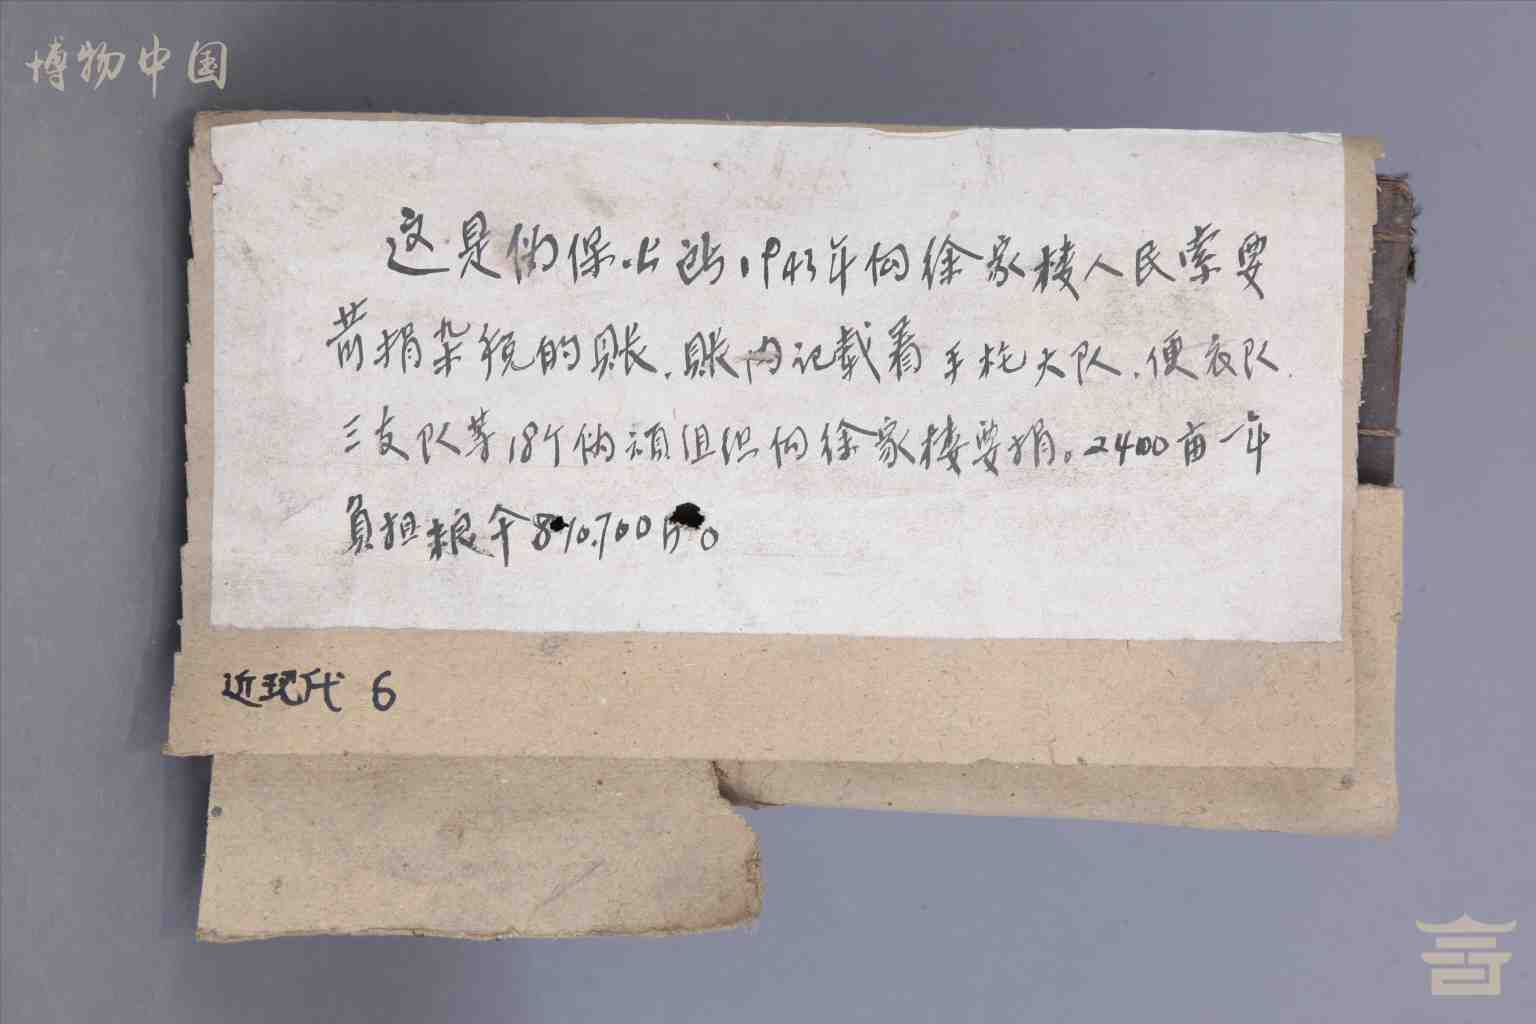 博物中国
这是伪保公所1943年向徐家楼人民索要
苛捐杂税的账.账内记载着手枪大队.便衣队.
三支队等18个伪顽组织向徐家楼要捐。2400亩一年
負担粮今
近现代 6